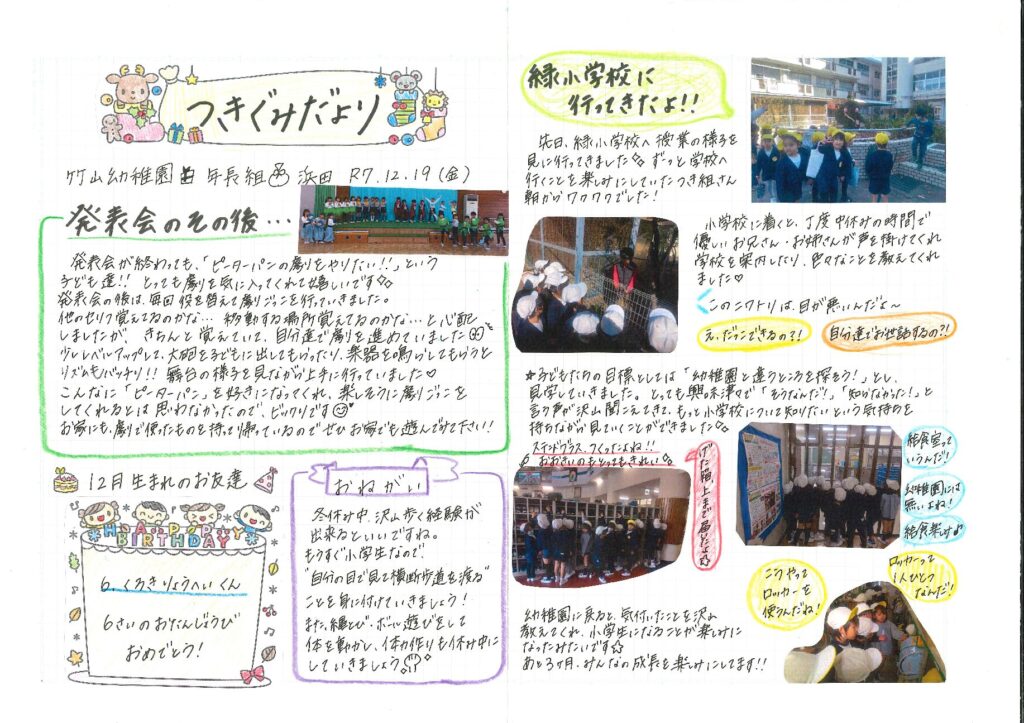 つきぐみだより
竹山幼稚園 年長組 浜田 R7.12.19(金)
発表会のその後…
発表会が終わっても、「ピーターパンの劇をやりたい!!」という
子ども達!! とっても劇を気に入ってくれて嬉しいです
発表会の後は、毎回役を替えて劇ごっこを行っていきました。
他のセリフ覚えてるのかな… 移動する場所覚えてるのかな…と心配
しましたが、きちんと覚えていて、自分達で劇を進めていました
少しレベルアップして、大道具を子どもに出してもらったり、楽器を鳴らしてもらうと
リズムもバッチリ!! 舞台の様子を見ながら上手に行っていました♡
こんなに「ピーターパン」を好きになってくれ、楽しそうに劇ごっこを
してくれるとは思わなかったので、ビックリです
お家にも、劇で使ったものを持って帰っているのでぜひお家でも遊んでみて下さい!
12月生まれのお友達
HAPPY BIRTHDAY
6. くろきりょうへいくん
6さいのおたんじょうび
おめでとう!
おねがい
冬休み中、沢山歩く経験が
出来るといいですね。
もうすぐ小学生なので、
"自分の目で見て横断歩道を渡る"
ことを身に付けていきましょう!
また、縄とび、ボール遊びをして
体を動かし、体力作りも休み中に
していきましょう
緑小学校に
行ってきたよ!!
先日、緑小学校へ授業の様子を
見に行ってきました。ずっと学校へ
行くことを楽しみにしていたつき組さん
朝からワクワクでした!
小学校に着くと、丁度中休みの時間で
優しいお兄さん・お姉さんが声を掛けてくれ
学校を案内したり、色々なことを教えてくれ
ました♡
このニワトリは、目が悪いんだよ〜
え、だっこできるの?!
自分達でお世話するの?!
★子どもたちの目標としては「幼稚園と違うところを探そう!」とし、
見学していきました。とっても興味津々で「そうなんだ!」「知らなかった!」と
言う声が沢山聞こえてきて、もっと小学校について知りたいという気持ちを
持ちながら見ていくことができました
ステンドグラス、つくったよね!!
おおさいのもとってもきれい
げた箱、上まで届いたよ☆
給食室って
いうんだ!
幼稚園には
無いよね!
給食楽しみ♪
こうやって
ロッカーを
使うんだね!
ロッカーって
1人ひとつ
なんだ!
幼稚園に戻ると、気付いたことを沢山
教えてくれ、小学生になることが楽しみに
なったみたいです☆
あと3ヶ月、みんなの成長を楽しみにしてます!!